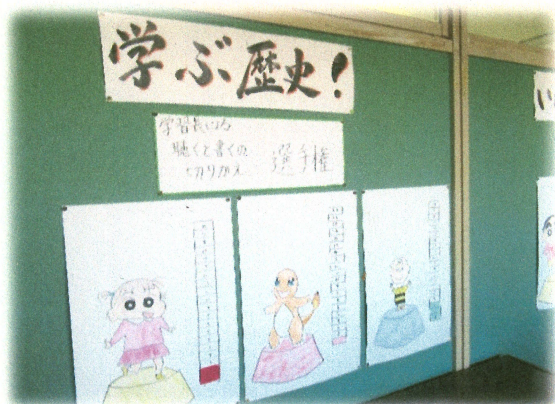 学ぶ歴史!
学習長による
聴くと書くの
切りかえ 選手権
い